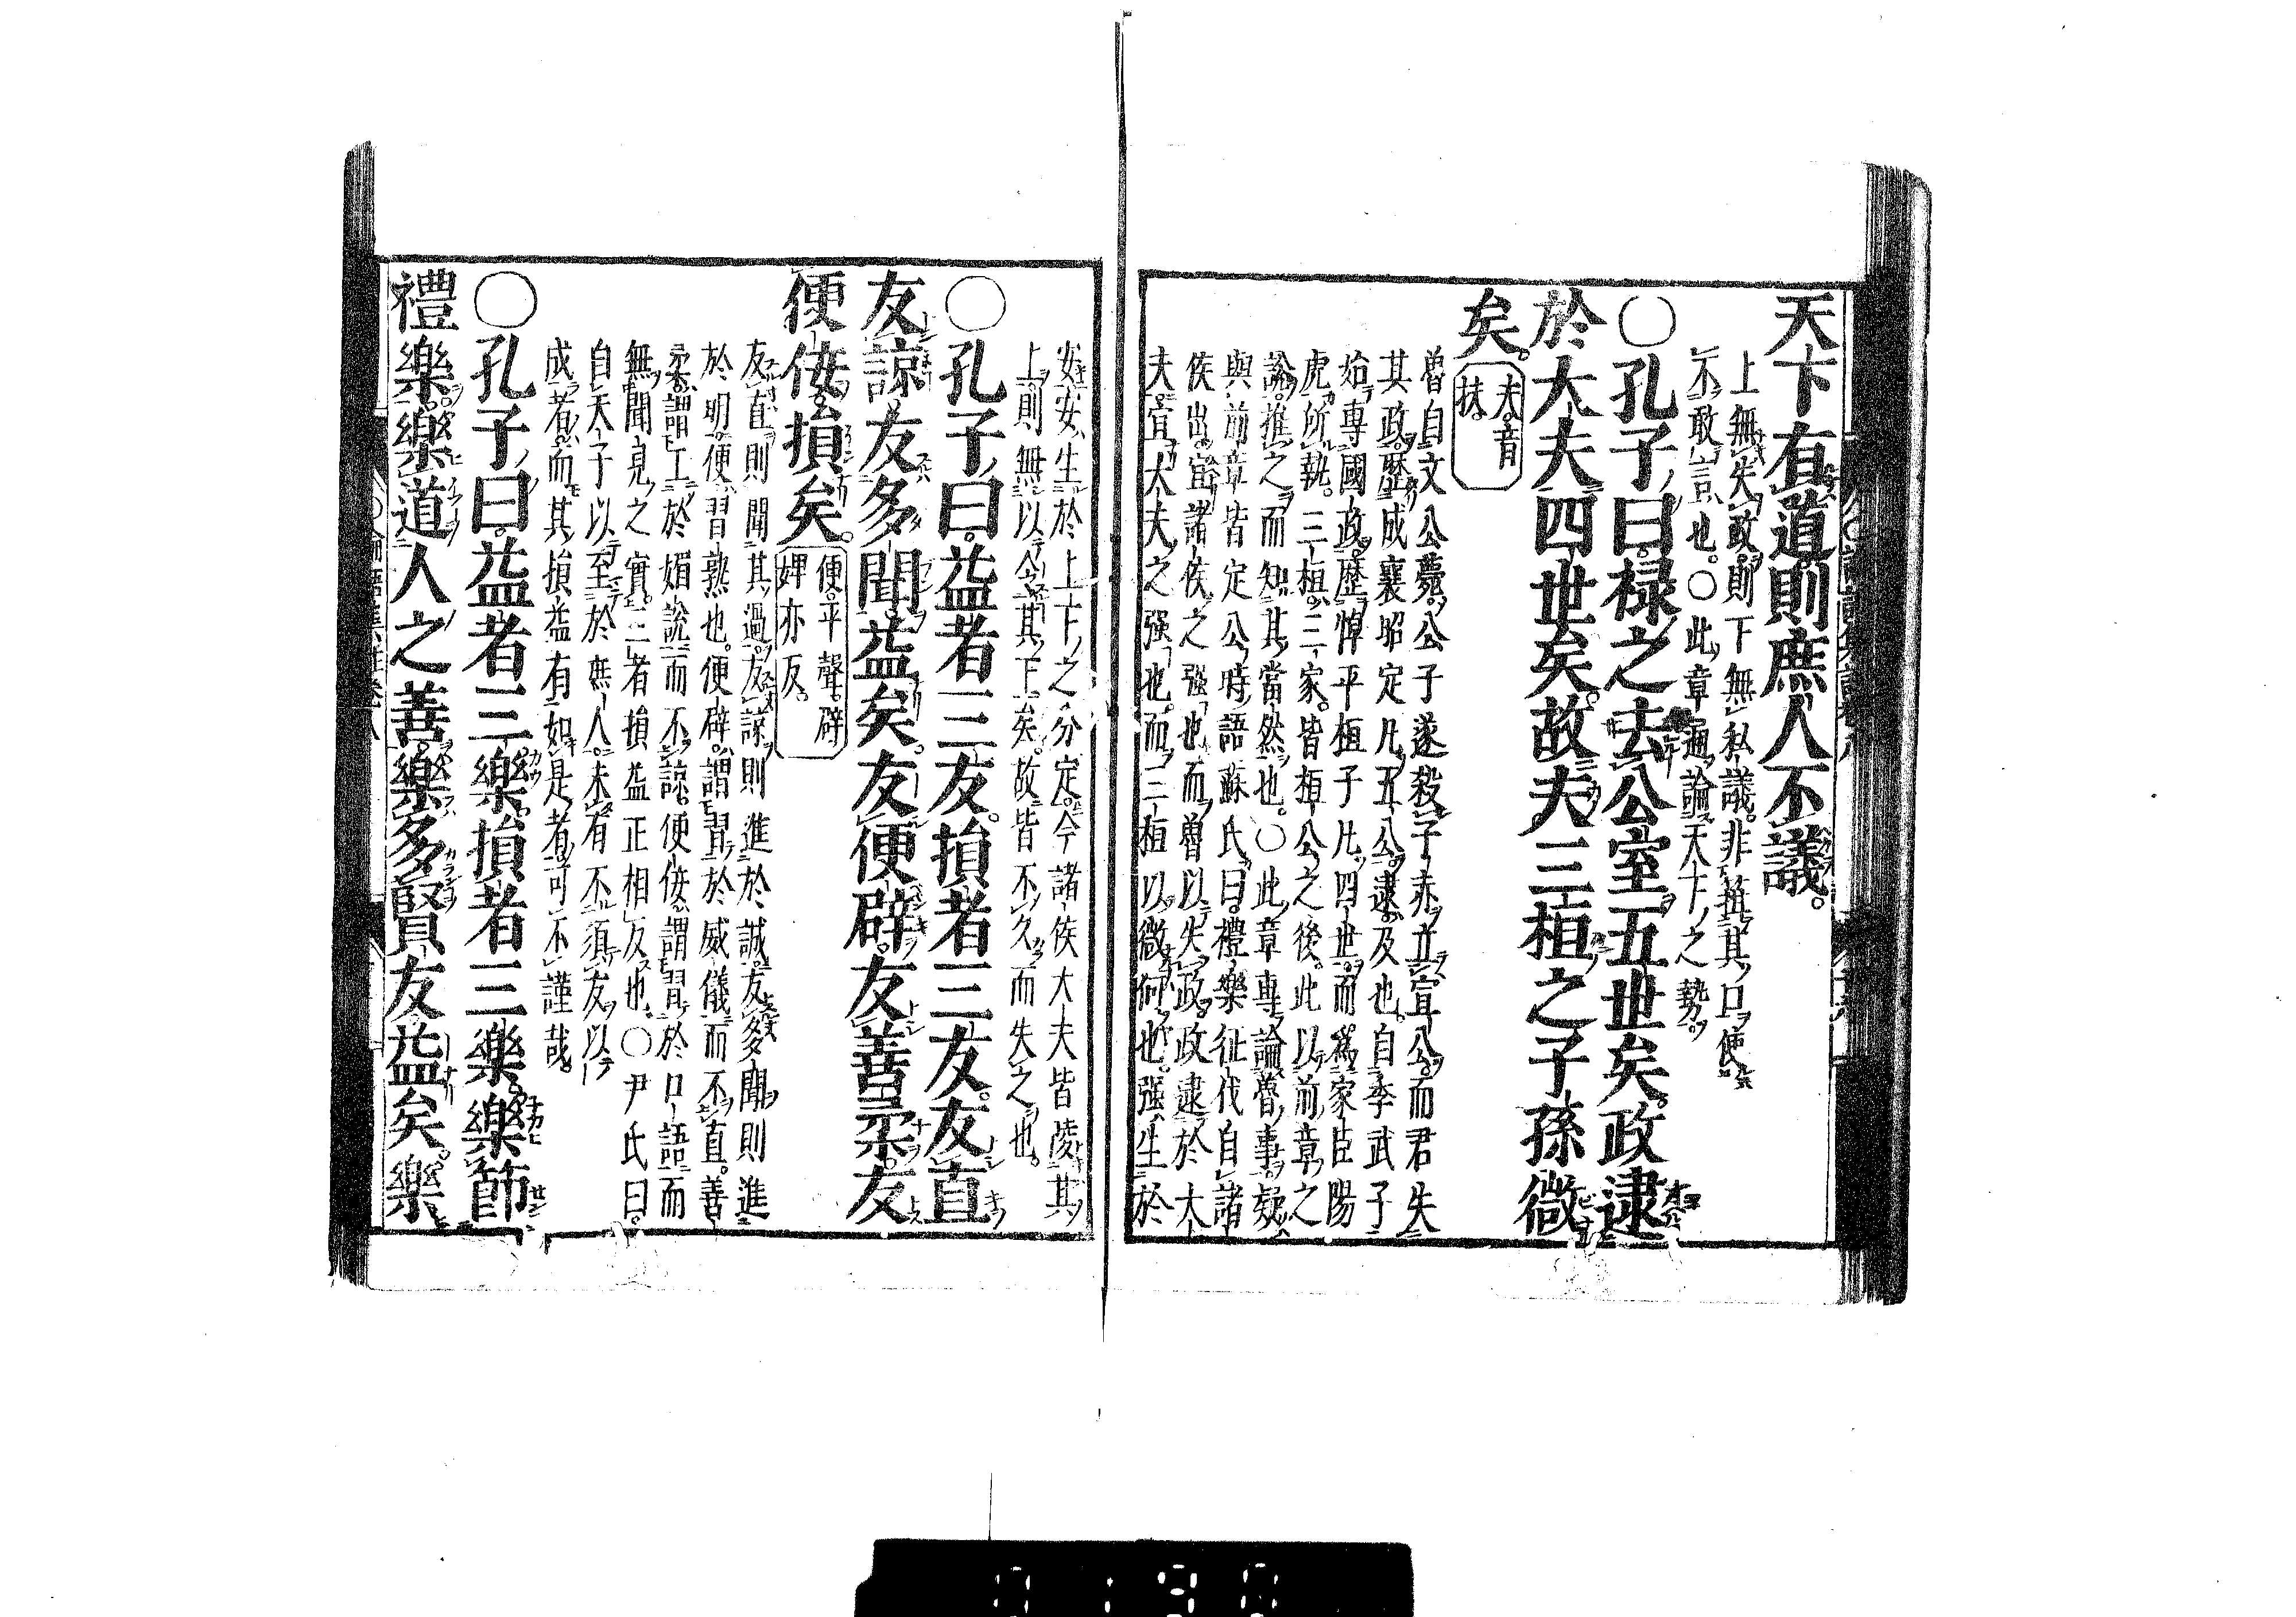 天下有道則庶人不議。
上無失政。則下無私議。非箝其口使
不敢言也。○此章通論天下之勢。
○孔子曰。禄之去公室五世矣。政逮
於大夫四世矣。故夫三桓之子孫微
矣。
夫。音
扶。
魯自文公薨。公子遂殺子赤立宣公。而君失
其政。歷成襄昭定凡五公。逮。及也。自季武子
始專國政。歷悼平桓子凡四世。而爲家臣陽
虎所執。三桓。三家。皆桓公之後。此以前章之
說推之而知其當然也。○此章專論魯事。疑
與前章皆定公時語。蘇氏曰。禮樂征伐自諸
侯出。宜諸侯之强也。而魯以失政。政逮於大
夫。宜大夫之强也。而三桓以微。何也。强生於
安。安生於上下之分定。今諸侯大夫皆陵其
上。則無以令其下矣。故皆不久而失之也。
○孔子曰。益者三友。損者三友。友直
友諒。友多聞益矣。友便辟。友善柔。友
便佞。損矣。
便。平聲。辟
婢亦反。
友直則聞其過。友諒則進於誠。友多聞則進
於明。便。習熟也。便辟。謂習於威儀而不直。善
柔。謂工於媚說而不諒。便佞。謂習於口語而
無聞見之實。三者損益正相反也。○尹氏曰。
自天子以至於庶人。未有不須友以
成者。而其損益有如是者。可不謹哉。
○孔子曰。益者三樂。損者三樂。樂節
禮樂。樂道人之善。樂多賢友。益矣。樂